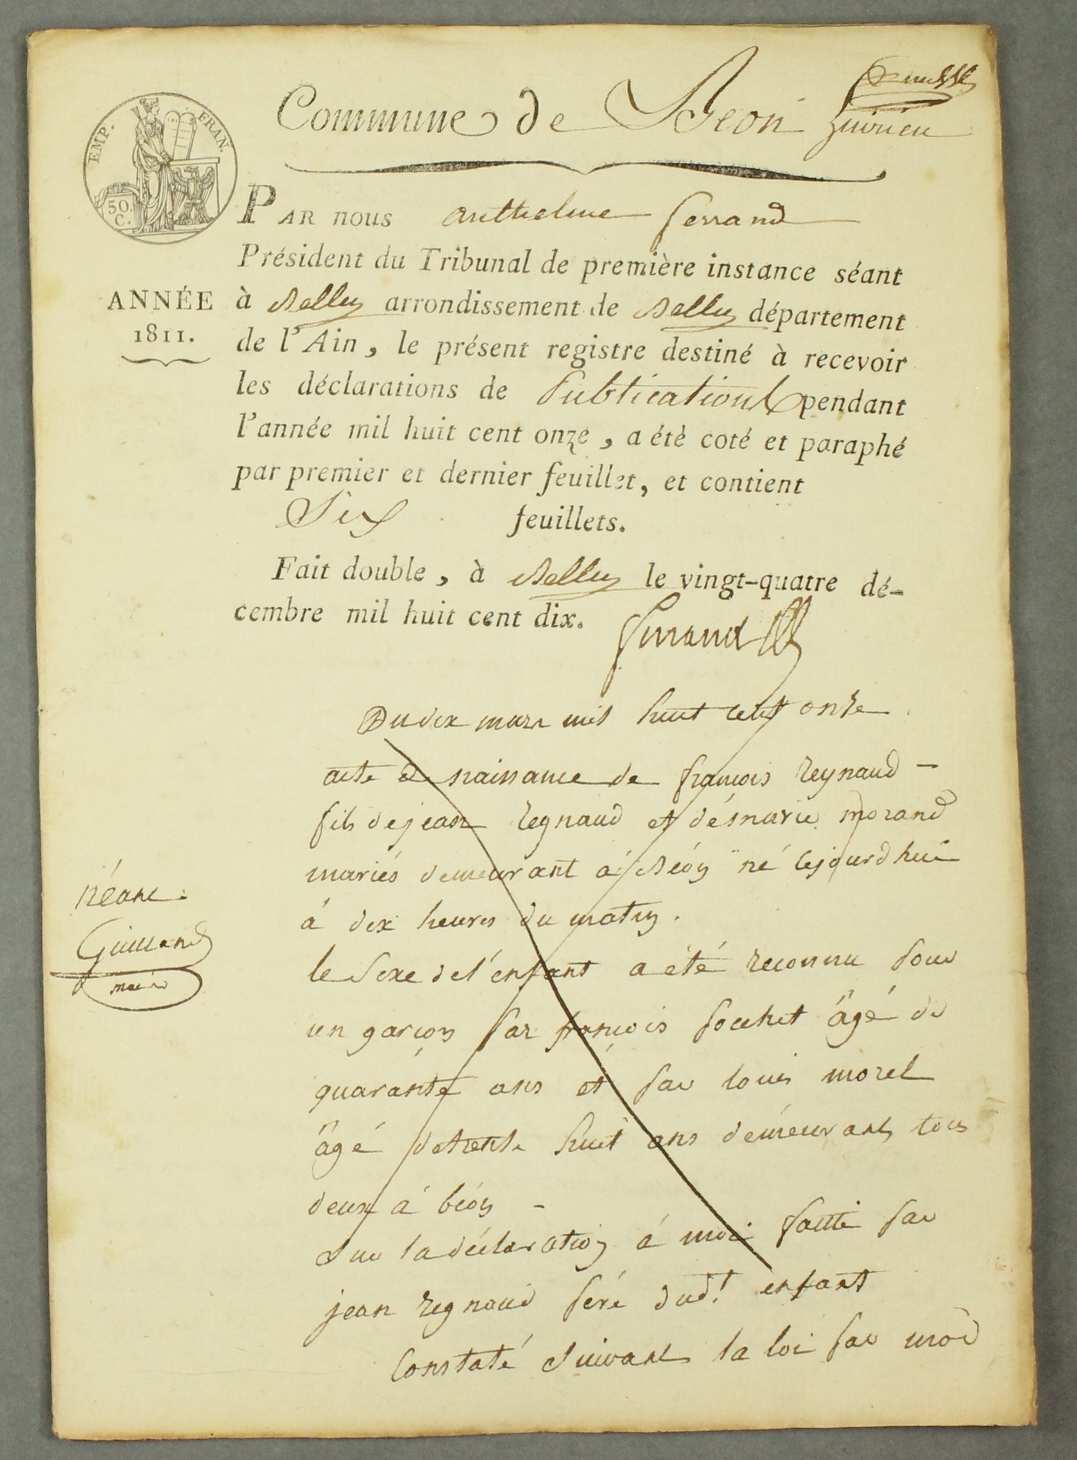 Commune de Béon
EMP. FRAN.
50. C.
PAR nous Anthelme ferrand
Président du Tribunal de première instance séant
à Belley arrondissement de Belley département
ANNÉE
1811.
de l'Ain, le présent registre destiné à recevoir
les déclarations de Publications pendant
l'année mil huit cent onze, a étè coté et paraphé
par premier et dernier feuillet, et contient
Six feuillets.
Fait double, à Belley le vingt-quatre dé-
cembre mil huit cent dix.
ferrand
Du dix mars mil huit cent onze
acte de naissance de françois Reynaud -
fils de jean Regnaud et de marie morand
mariés demeurant à Béon né cejourd'hui
à dix heures du matin.
néant.
Guilland
maire
le sexe de l'enfant a été reconnu pour
un garçon par françois pochet âgé de
quarante ans et par louis morel
âgé de trente huit ans demeurant tous
deux à béon -
Sur la déclaration à moi faitte par
jean regnaud père dudt enfant
Constaté Suivant la loi par moi